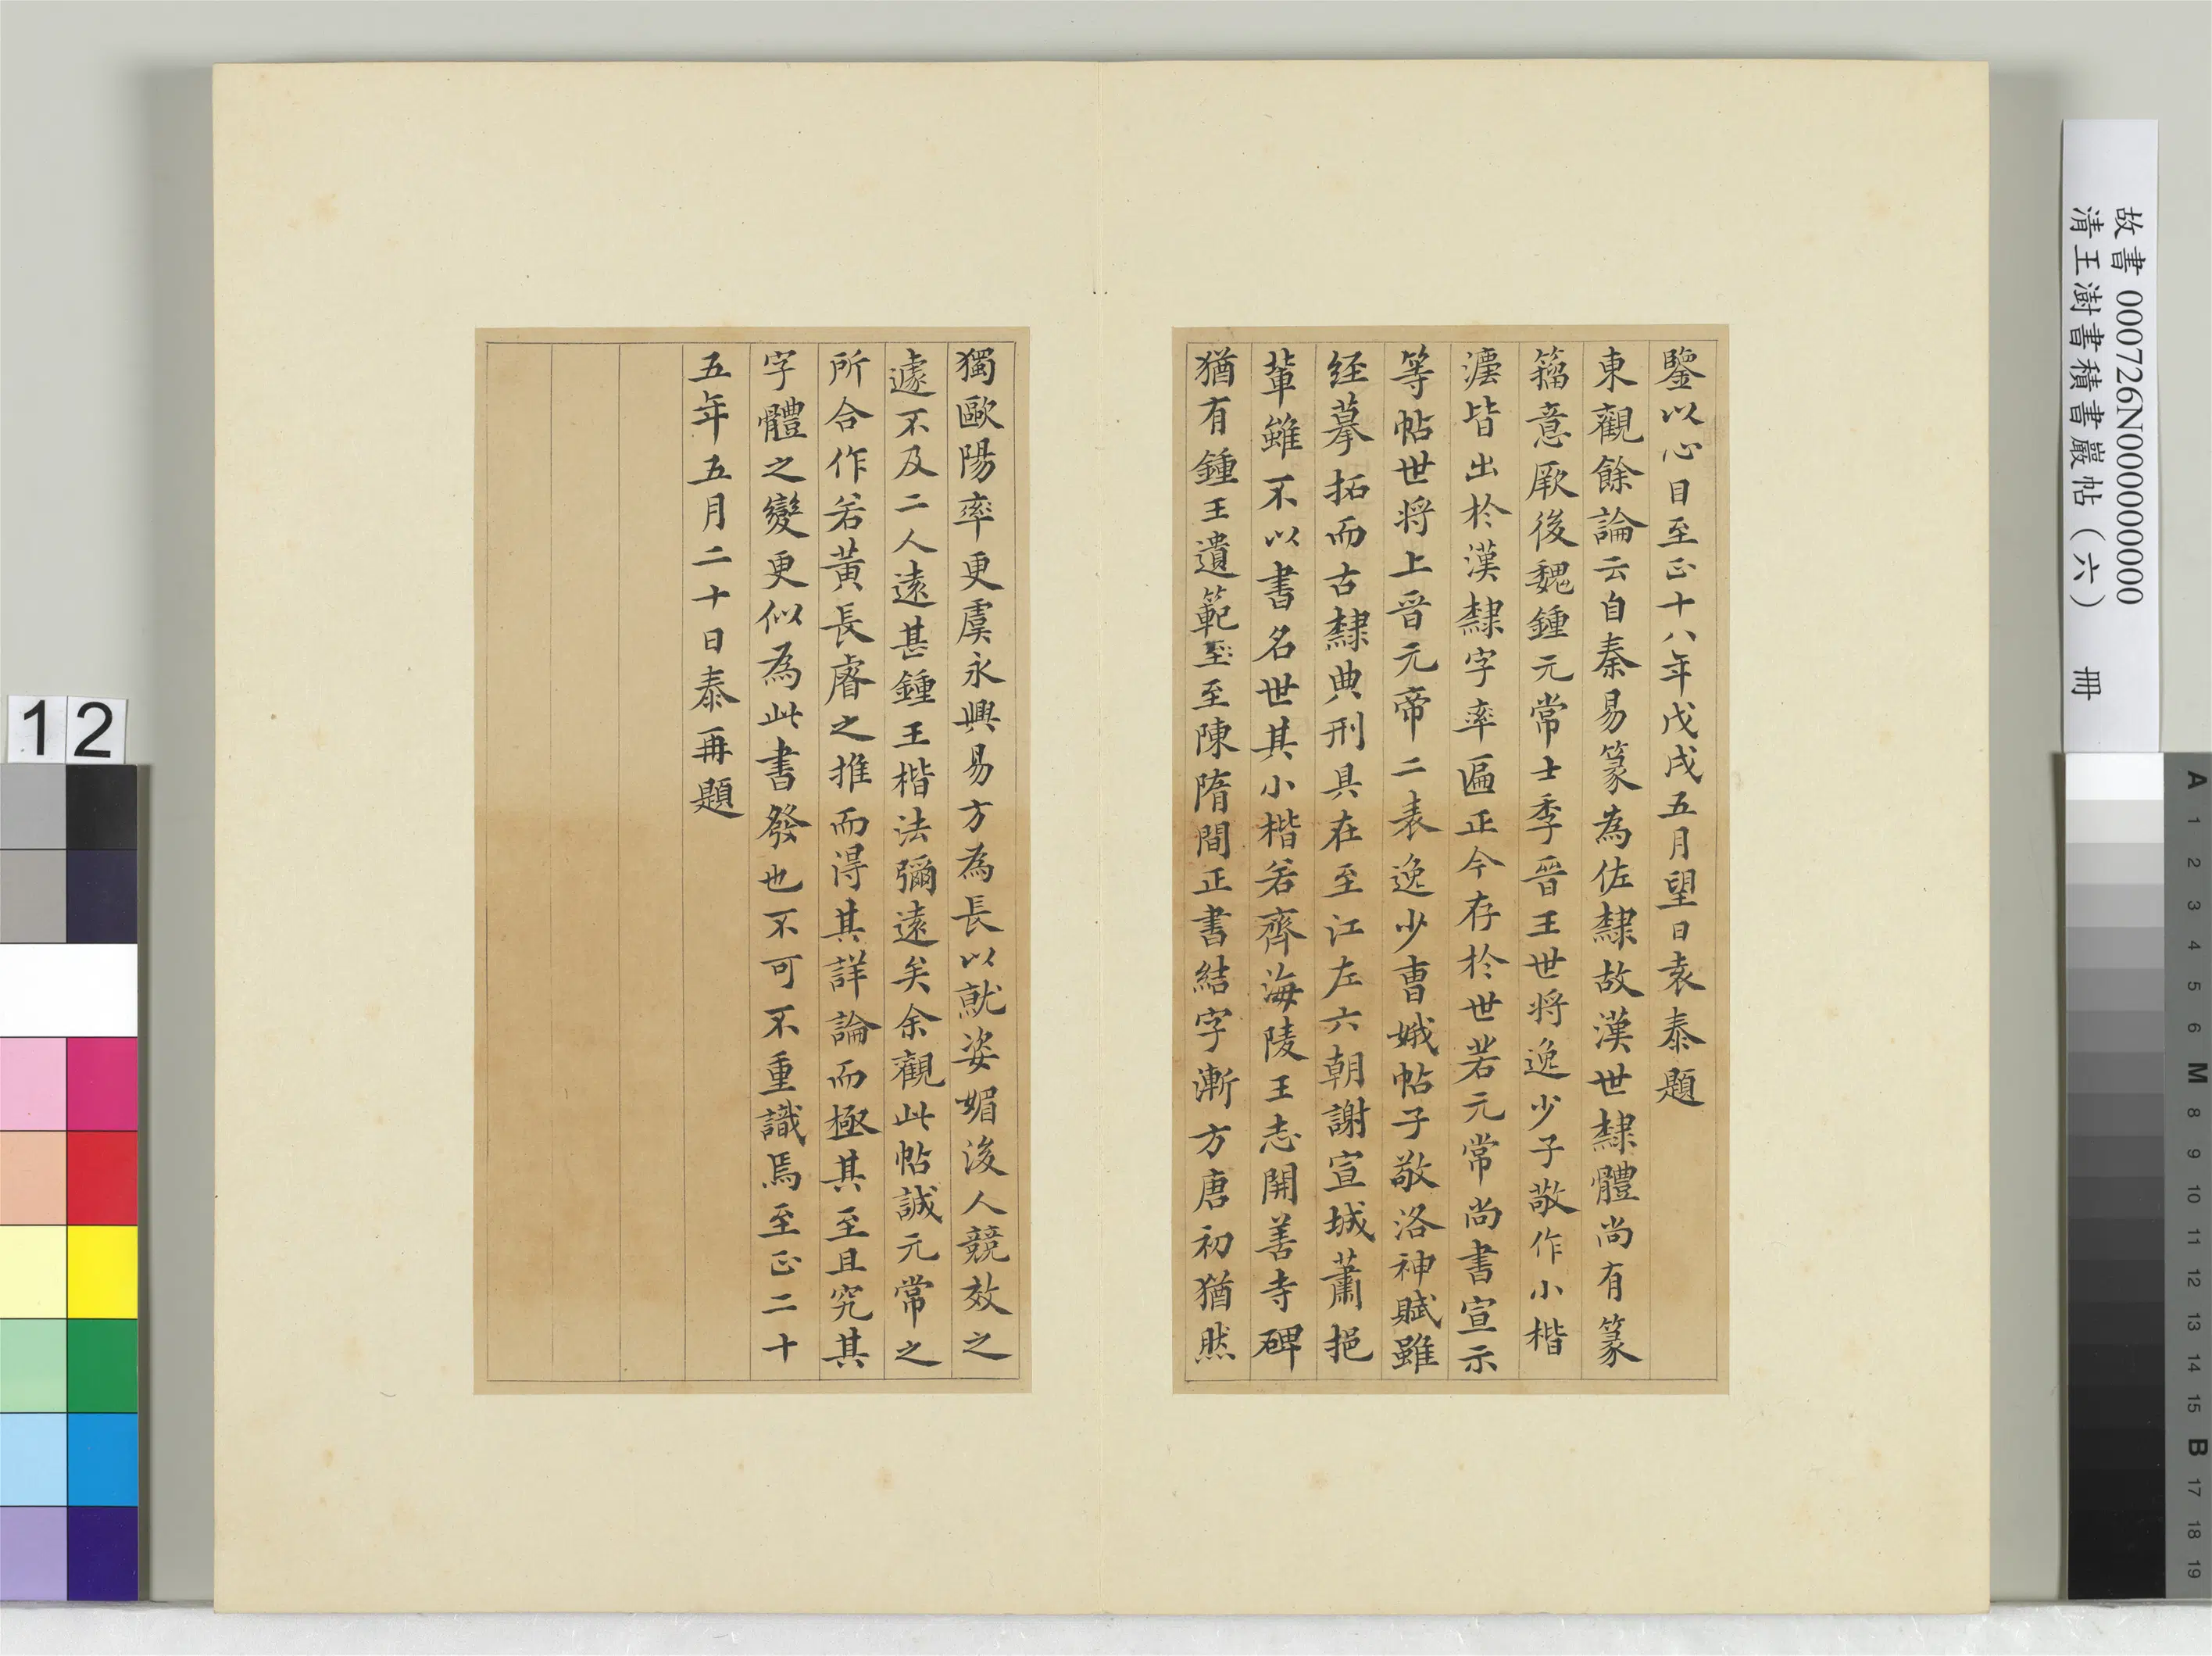 鑒以心目至正十八年戊戌五月望日袁泰題
東觀餘論云自秦易篆為佐隸故漢世隸體尚有篆
籀意厥後魏鍾元常士季晉王世將逸少子敬作小楷
灋皆出於漢隸字率匾正今存於世若元常尚書宣示
等帖世將上晉元帝二表逸少曹娥帖子敬洛神賦雖
經摹拓而古隸典刑具在至江左六朝謝宣城蕭挹
輩雖不以書名世其小楷若齊海陵王志開善寺碑
猶有鍾王遺範至至陳隋間正書結字漸方唐初猶然
獨歐陽率更虞永興易方為長以就姿媚後人競效之
遽不及二人遠甚鍾王楷法彌遠矣余觀此帖誠元常之
所合作若黃長睿之推而得其詳論而極其至且究其
字體之變更似為此書發也不可不重識焉至正二十
五年五月二十日泰再題
故書 000726N000000000
清王澍書積書巖帖（六） 冊
12
A 1 2 3 4 5 6 M 8 9 10 11 12 13 14 15 B 17 18 19